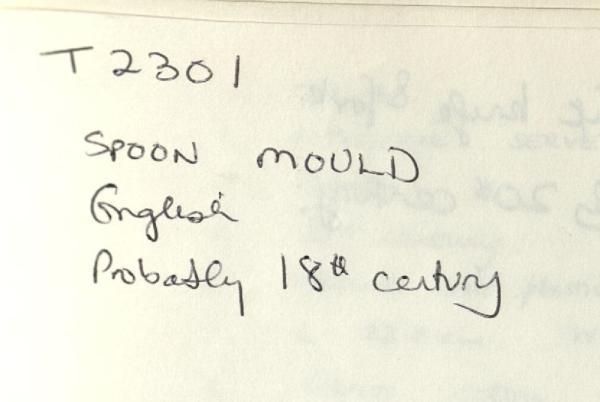 T2301
SPOON MOULD
English
Probably 18th century